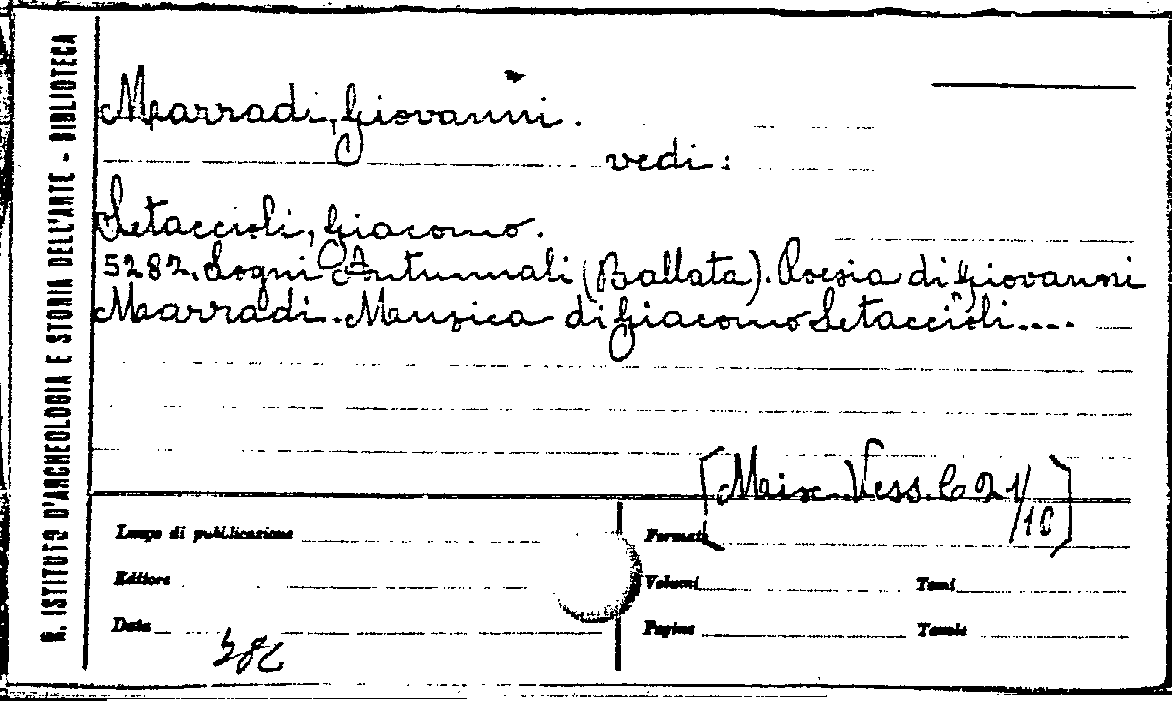 R. ISTITUTO D'ARCHEOLOGIA E STORIA DELL'ARTE - BIBLIOTECA
Marradi, Giovanni.
vedi:
Setaccioli, Giacomo.
5282. Sogni Autunnali (Ballata). Poesia di Giovanni
Marradi. Musica di Giacomo Setaccioli....
[Misc. Vess. 21/10]
Luogo di pubblicazione
Formato
Editore
Volumi
Tomi
Data
Pagine
Tavole